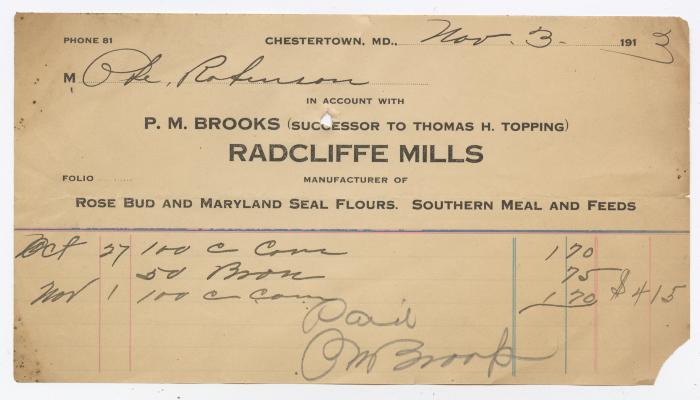 PHONE 81 CHESTERTOWN, MD., Nov. 3 1913
M Robinson
IN ACCOUNT WITH
P. M. BROOKS (SUCCESSOR TO THOMAS H. TOPPING)
RADCLIFFE MILLS
FOLIO MANUFACTURER OF
ROSE BUD AND MARYLAND SEAL FLOURS. SOUTHERN MEAL AND FEEDS
Oct 27 100 C Corn 1 70
50 Bran 75
Nov 1 100 C Corn 1 70 $4 15
Paid
P M Brooks